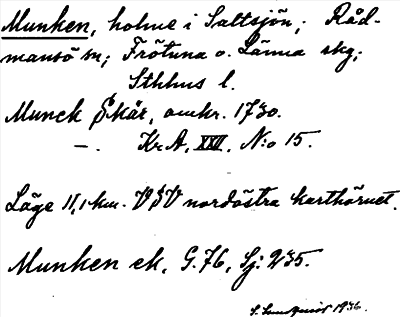 Munken, holme i Saltsjön; Råd-
mansö sn; Frötuna o. Länna skg;
Sthlms l.
Munck Skär, omkr. 1730.
—. Kr.A, XXII, N:o 15.
Läge 11,1 km. VSV nordöstra karthörnet.
Munken ek, G.76, Sj: 235.
1936.